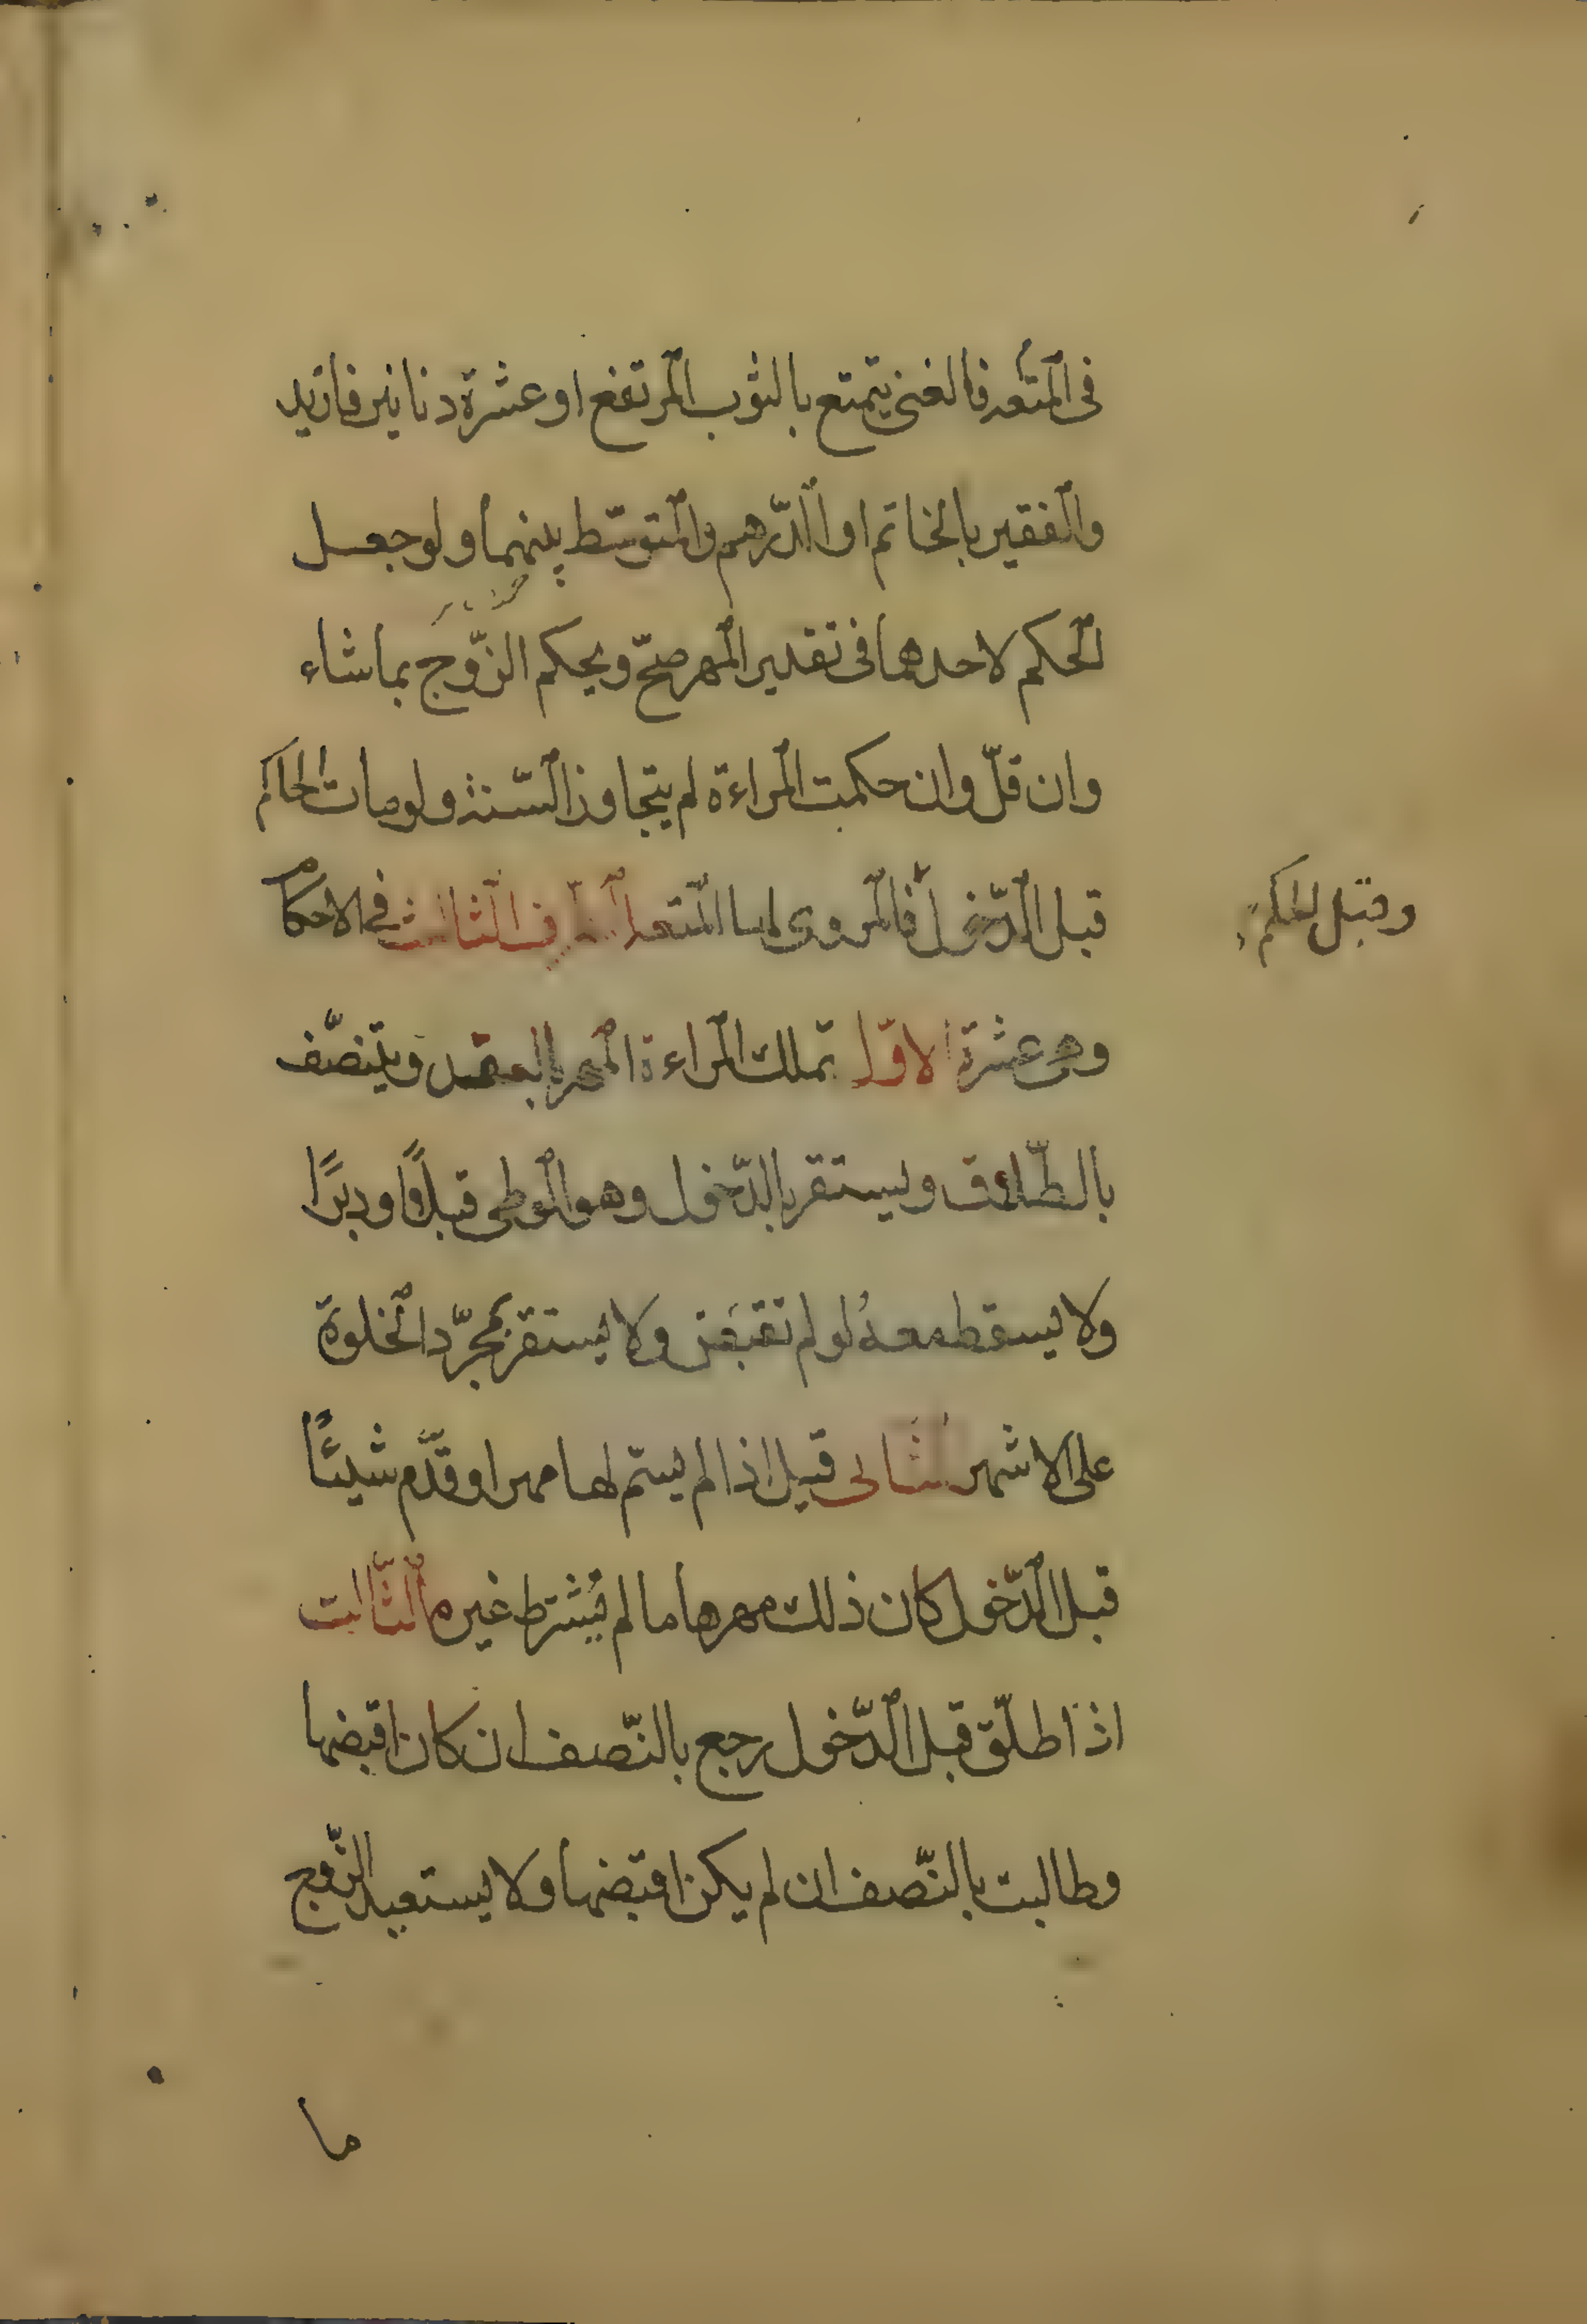 فى المتعه فالغنى يتمتع بالثوب المرتفع او عشرة دنانير فازيد
والفقير بالخاتم او الدّرهم والمتوسّط بينهما ولو جعل
الحكم لاحدهما فى تقدير المهر صحّ ويحكم الزّوج بما شاء
وان قلّ وان حكمت المراءة لم يتجاوز السّنة ولو مات الحاكم
قبل الدّخول فالمروى لها المتعه الطرف الثالث فى الاحكام
وقبل الحكم
وهى عشرة الاوّل تملك المراءة المهر بالعقد ويتنصّف
بالطّلاق ويستقر بالدّخول وهو الوطى قبلًا ودبرًا
ولا يسقط معهُ لو لم تقبض ولا يستقر بمجرّد الخلوة
على الاشهر الثانى قيل اذا لم يسّم لها مهرا وقدّم شيئًا
قبل الدّخول كان ذلك مهرها ما لم يُشترط غيره الثّالث
اذا طلّق قبل الدّخول رجع بالنّصف ان كان اقبضها
وطالبت بالنّصف ان لم يكن اقبضها ولا يستعيد الزّوج
ما